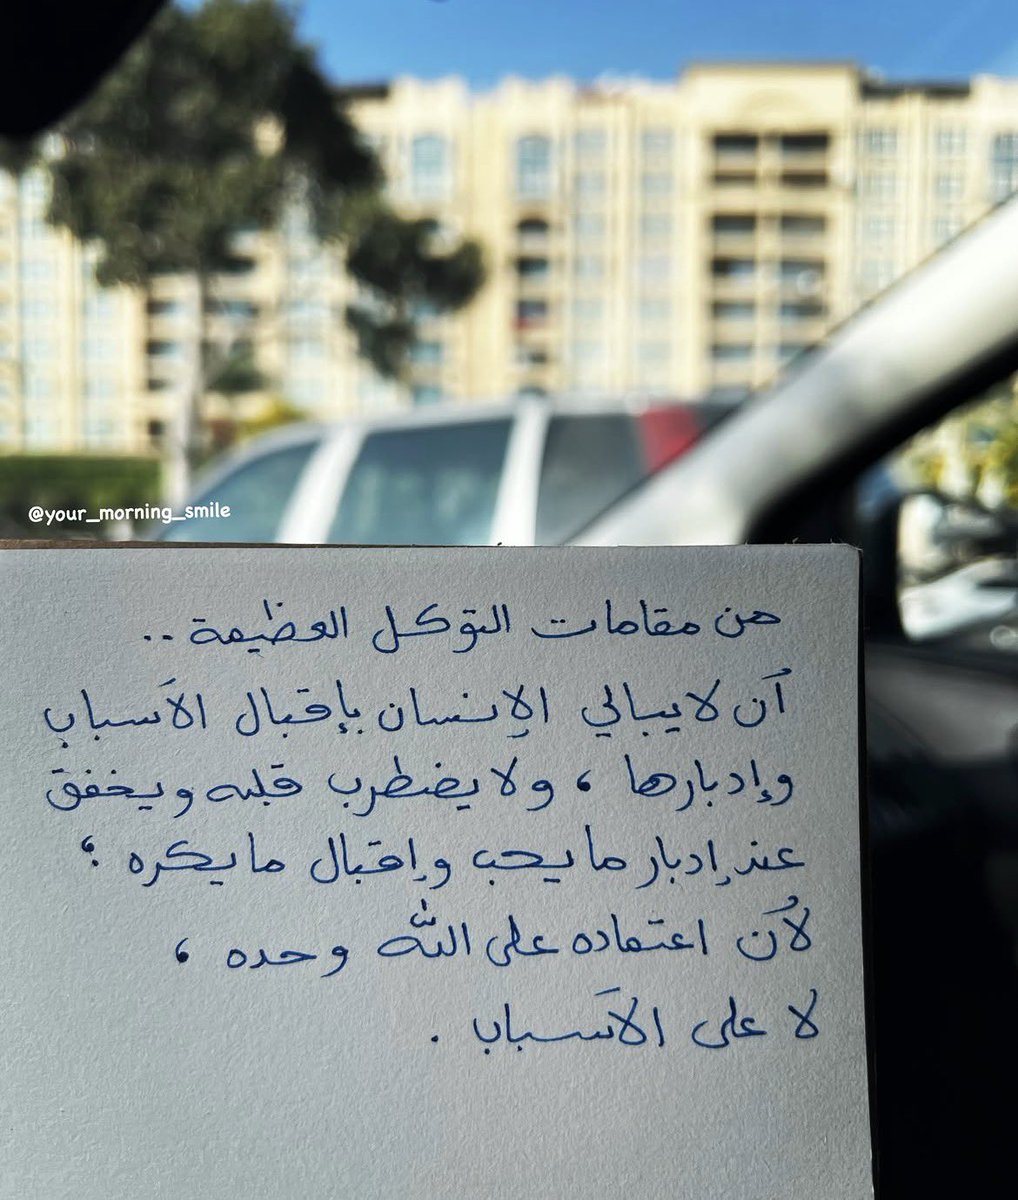 @your_morning_smile
من مقامات التوكل العظيمة ..
أن لا يبالي الإنسان بإقبال الأسباب
وإدبارها ، ولا يضطرب قلبه ويخفق
عند إدبار ما يحب وإقبال ما يكره ؛
لأن اعتماده على الله وحده ،
لا على الأسباب .